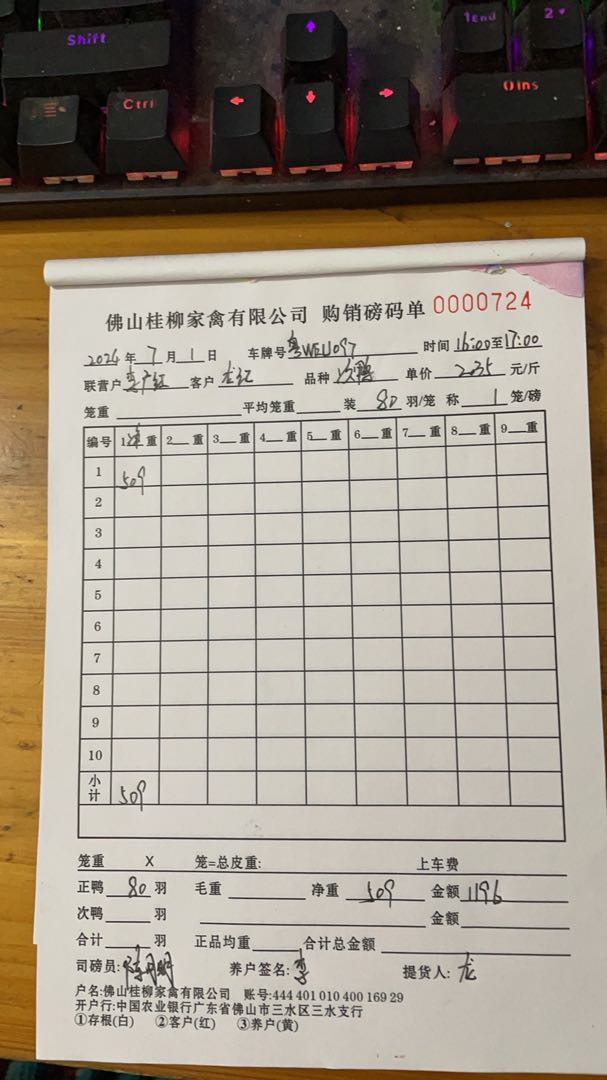 Shift
1 End
2
Ctrl
0 ins
佛山桂柳家禽有限公司 购销磅码单 0000724
2024年 7月 1日 车牌号 粤WEU097 时间 16:00至17:00
联营户 客户 龙红 品种 次鸭 单价 2.35 元/斤
笼重 平均笼重 装 80 羽/笼 称 1 笼/磅
编号 1净重 2 重 3 重 4 重 5 重 6 重 7 重 8 重 9 重
1 509
2
3
4
5
6
7
8
9
10
小计 509
笼重 X 笼=总皮重: 上车费
正鸭 80 羽 毛重 净重 509 金额 1196
次鸭 羽 金额
合计 羽 正品均重 合计总金额
司磅员: 养户签名: 李 提货人: 龙
户名:佛山桂柳家禽有限公司 账号:444 401 010 400 169 29
开户行:中国农业银行广东省佛山市三水区三水支行
①存根(白) ②客户(红) ③养户(黄)